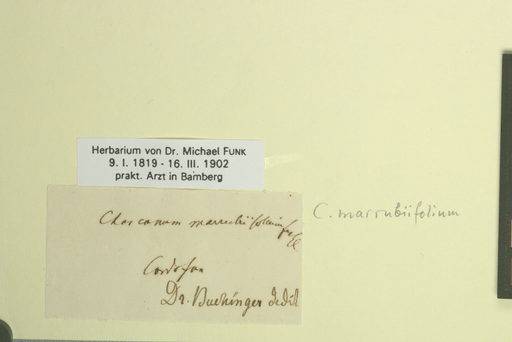 Herbarium von Dr. Michael FUNK
9. I. 1819 - 16. III. 1902
prakt. Arzt in Bamberg
Chascanum marrubiifolium
C. marrubiifolium
Cordofan
Dr. Buchinger dedit